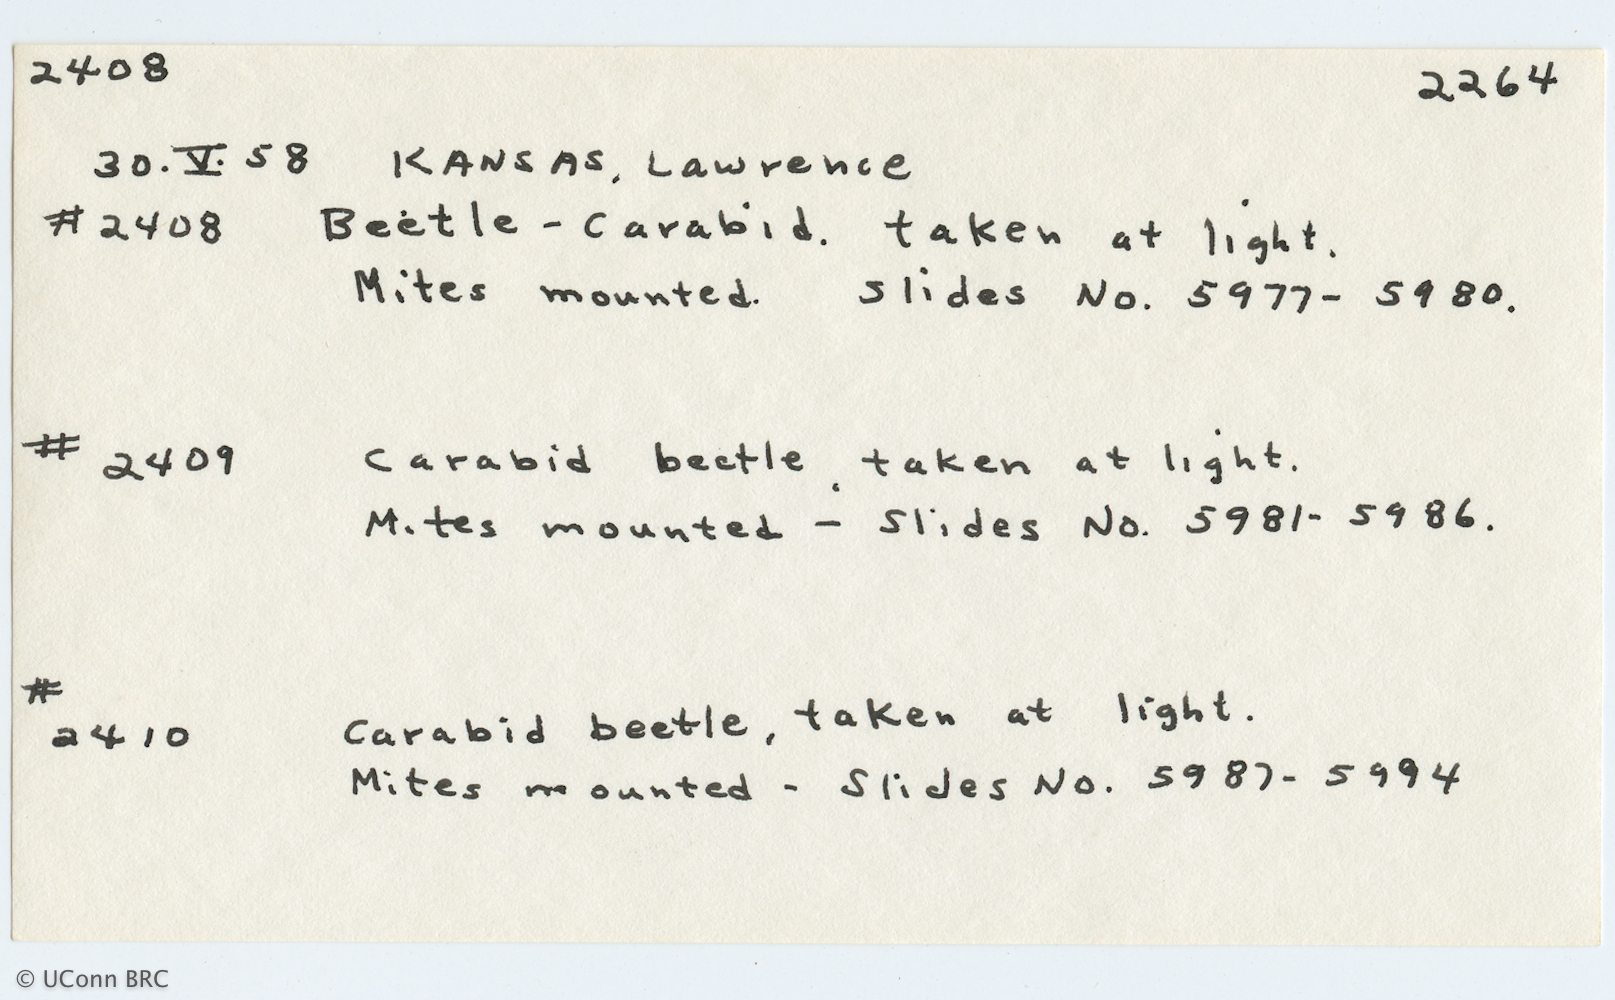 2408 2264
30.V.58 KANSAS, Lawrence
#2408 Beetle - Carabid. taken at light.
Mites mounted. Slides No. 5977-5980.
# 2409 Carabid beetle, taken at light.
Mites mounted - Slides No. 5981-5986.
#
2410 Carabid beetle, taken at light.
Mites mounted - Slides No. 5987-5994
© UConn BRC